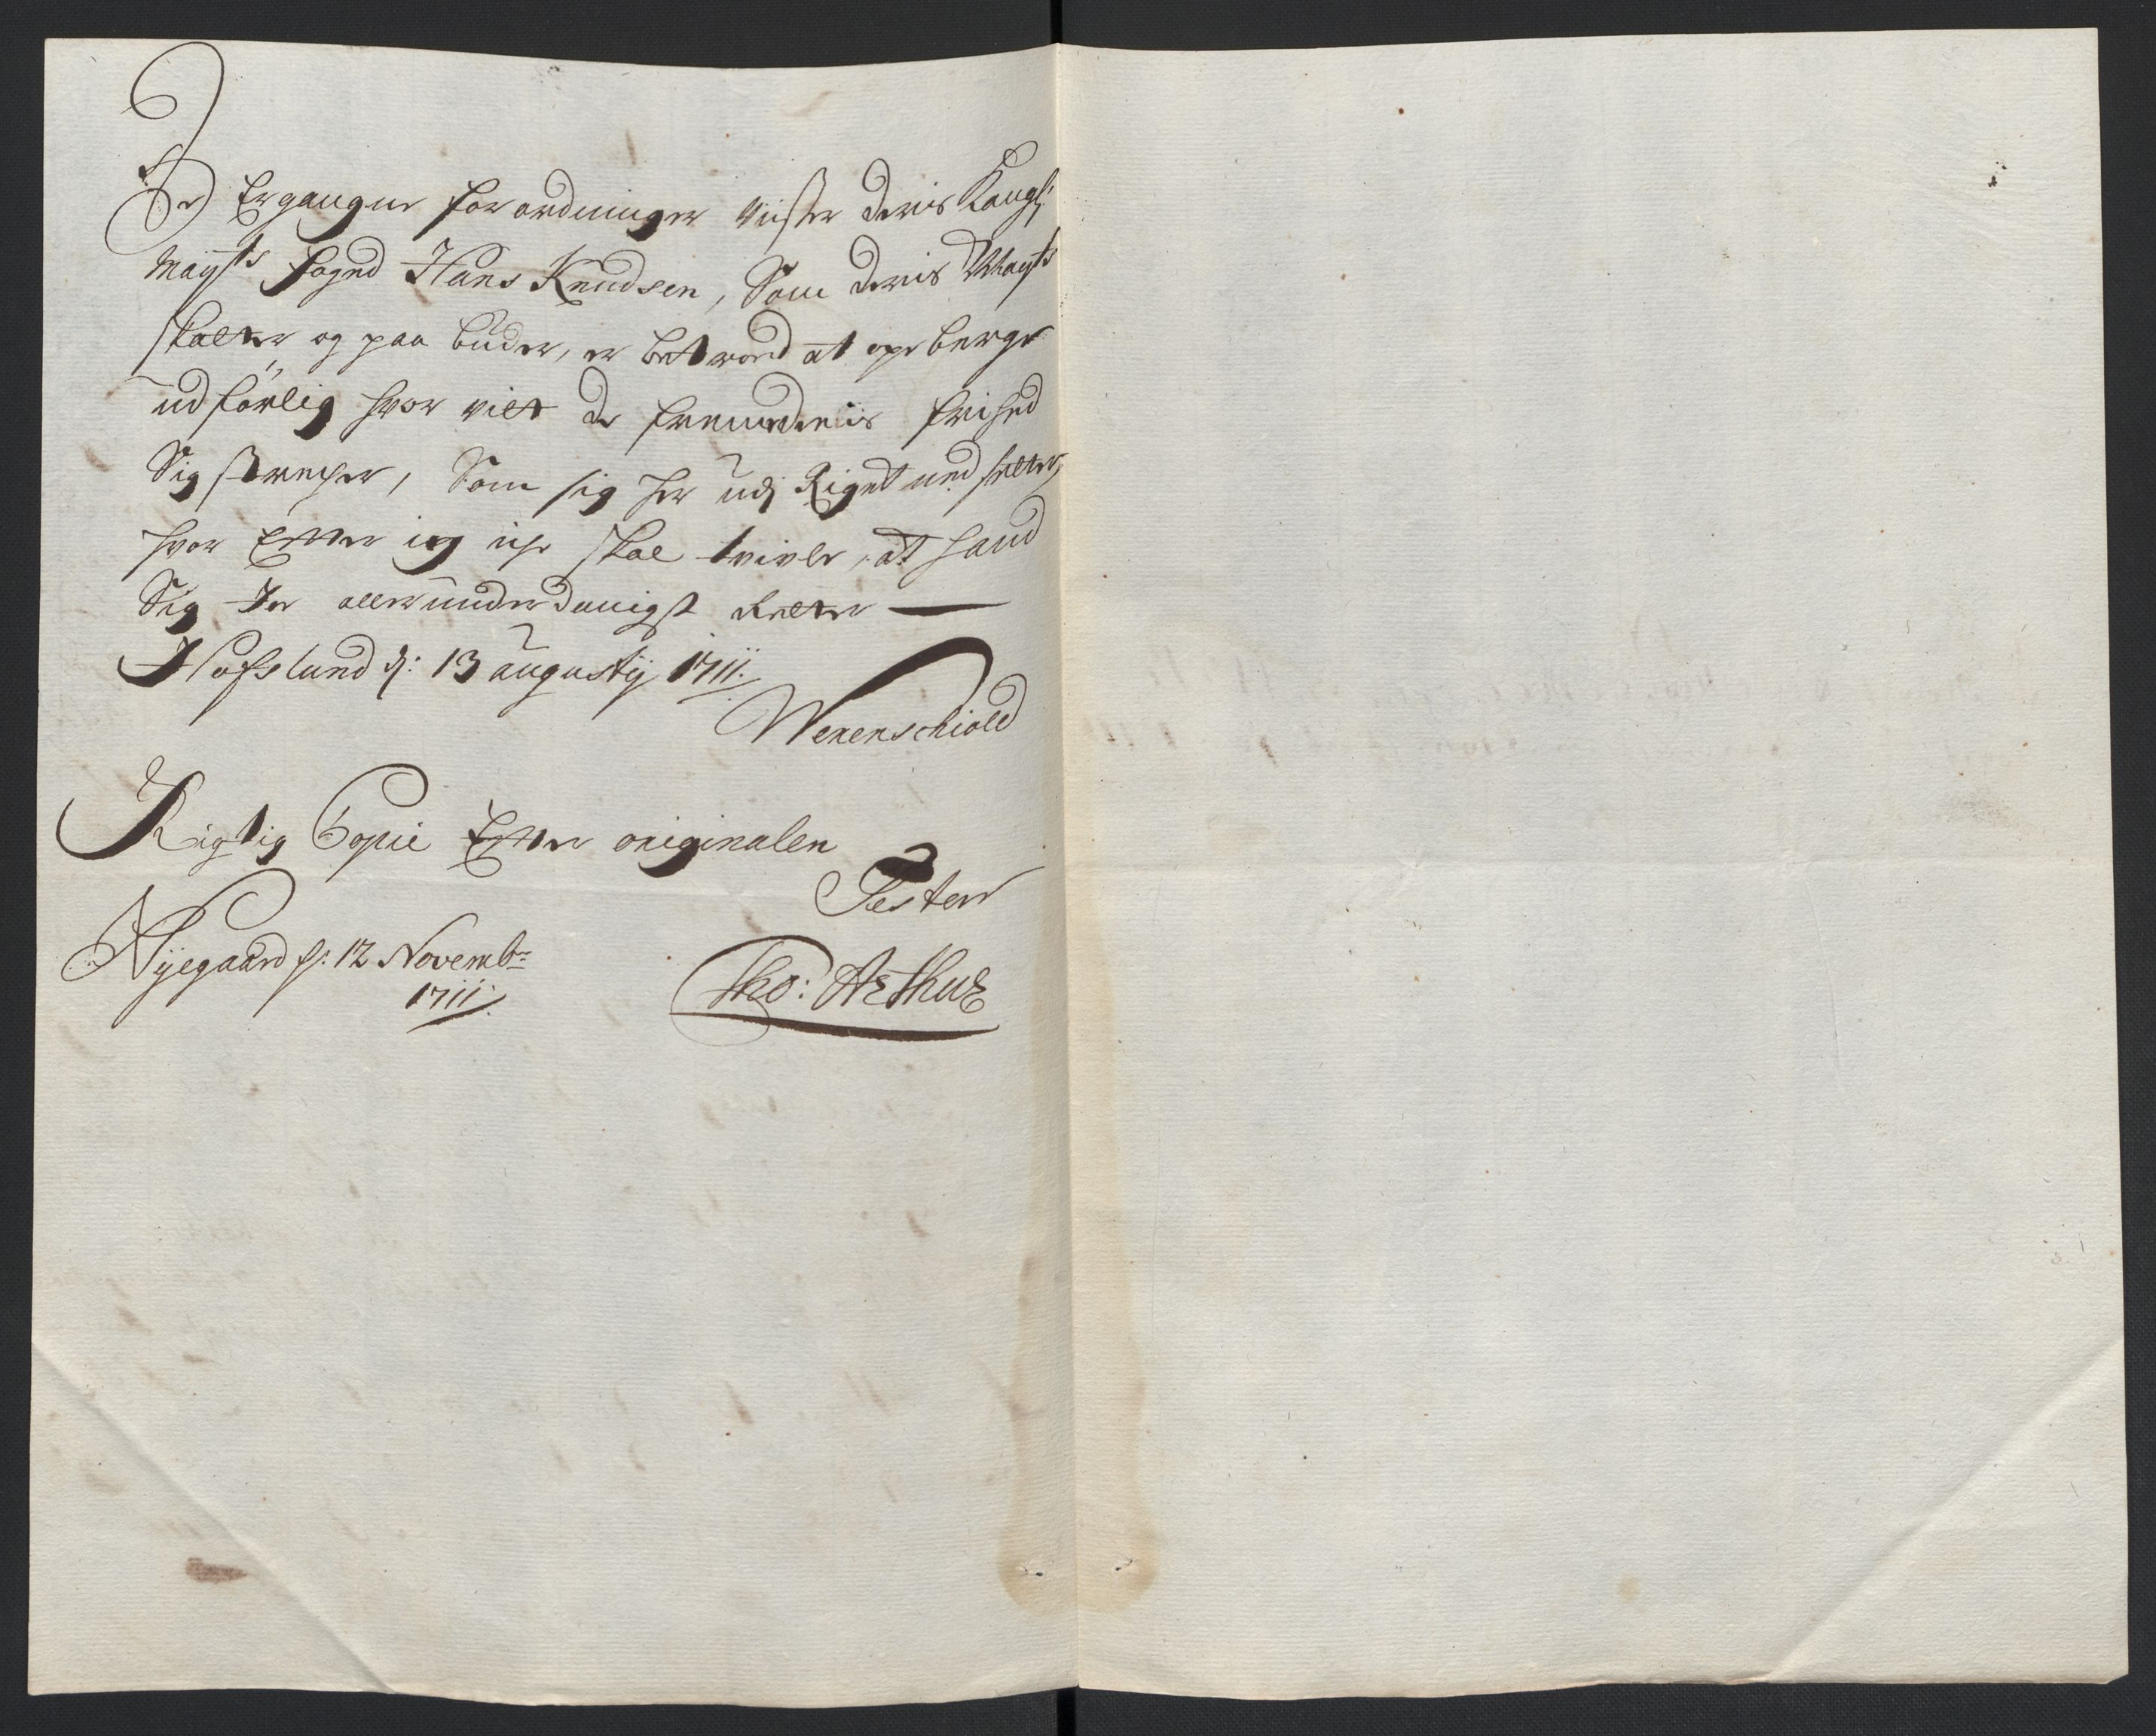 De Ergangne forordninger viser deris Kongl:
Mayts foged Hans Knudsen, Som deris Mayts
skatter og paa buder, er betroed at opeberge
udførlig hvor vit de fremmedeis frihed
Sig strecher, Som sig her udj Riget ned setter,
hvor Efter ieg iche skal tvivle, at hand
Sig Jo allerunderdanigst Retter
Hafslund d: 13 augustij 1711.
Werenschiold
Rigtig Copie Efter originalen
Tester
Nÿegaard d: 12 Novembr
1711
Tho: Arthur